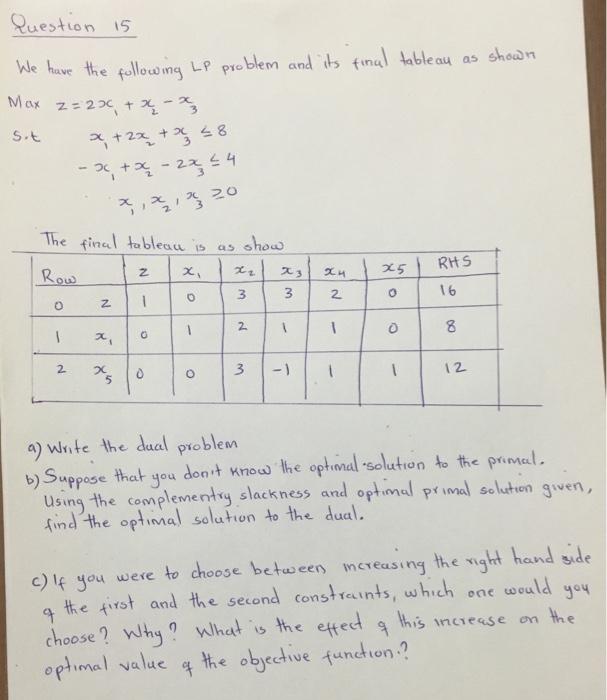 Question 15
We have the following LP problem and its final tableau as shown
Max z = 2x₁ + x₂ - x₃
S.t x₁ + 2x₂ + x₃ ≤ 8
- x₁ + x₂ - 2x₃ ≤ 4
x₁, x₂, x₃ ≥ 0
The final tableau is as show
Row z x₁ x₂ x₃ x₄ x₅ RHS
0 z 1 0 3 3 2 0 16
1 x₁ 0 1 2 1 1 0 8
2 x₅ 0 0 3 -1 1 1 12
a) Write the dual problem
b) Suppose that you don't know the optimal solution to the primal.
Using the complementry slackness and optimal primal solution given,
find the optimal solution to the dual.
c) If you were to choose between increasing the right hand side
of the first and the second constraints, which one would you
choose? Why? What is the effect of this increase on the
optimal value of the objective function.?